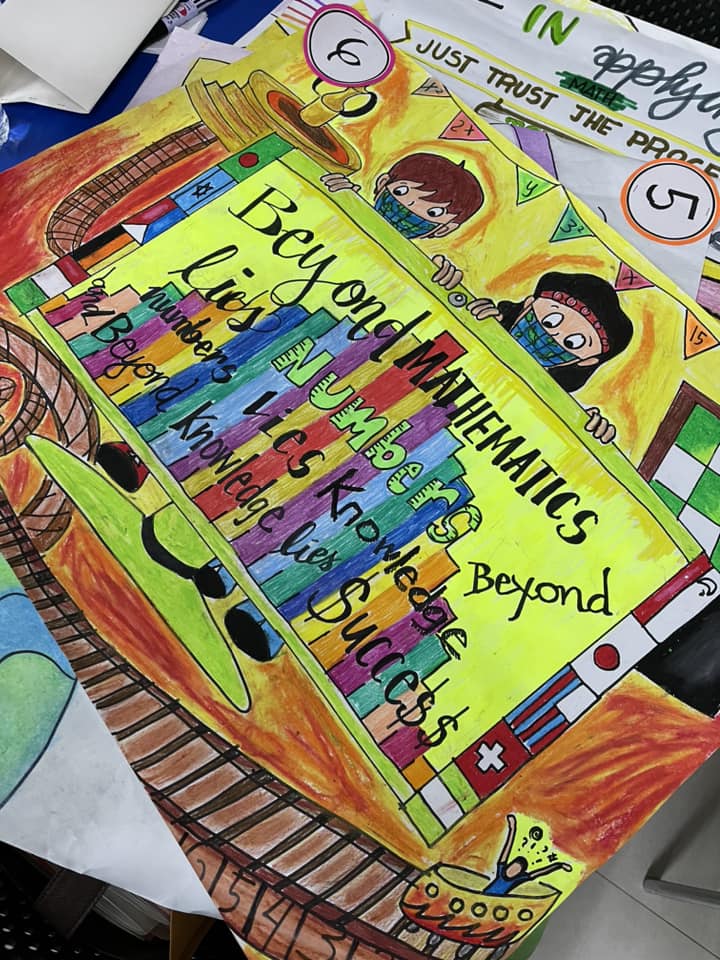 IN applying
MATH
JUST TRUST THE PROCE
6
5
2x
y
3²
x
15
Beyond MATHEMATICS
lies Numbers Beyond
numbers Lies Knowledge
and Beyond Knowledge lies Success
15 14 13